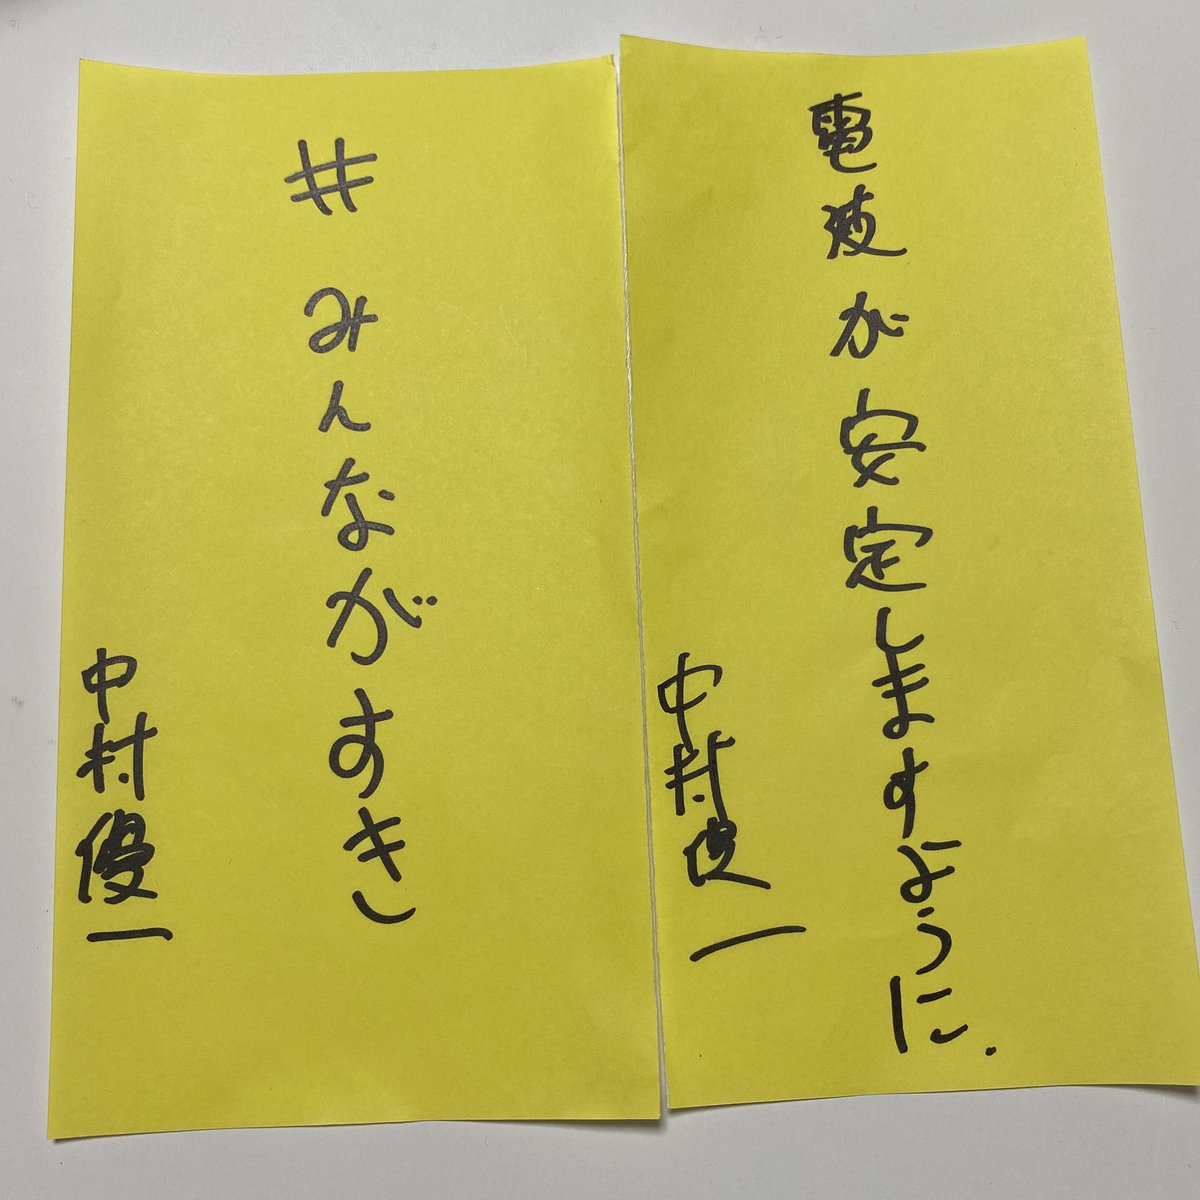 電波が安定しますように.
中村優一
#みんながすき
中村優一